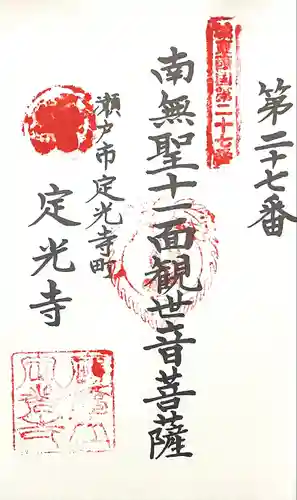 第二十七番
南無聖十一面観世音菩薩
瀬戸市定光寺町
定光寺